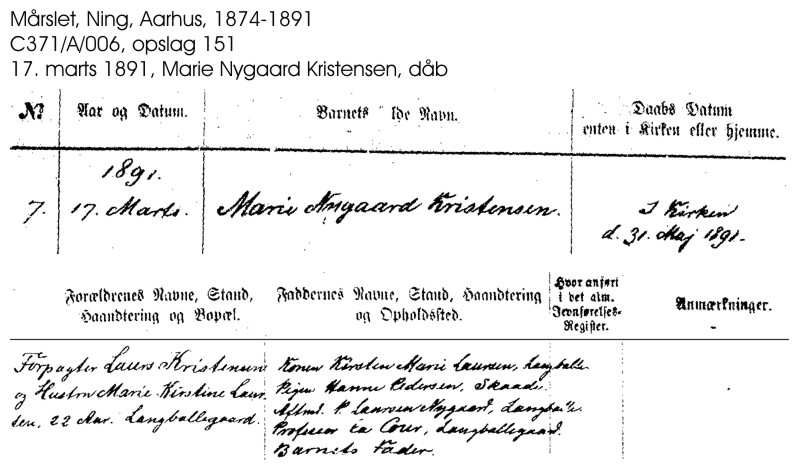 Mårslet, Ning, Aarhus, 1874-1891
C371/A/006, opslag 151
17. marts 1891, Marie Nygaard Kristensen, dåb
No. Aar og Datum. Barnets lde Navn. Daabs Datum
enten i Kirken eller hjemme.
1891.
7. 17. Marts. Marie Nygaard Kristensen. I Kirken
d. 31. Maj 1891.
Forældrenes Navne, Stand,
Haandtering og Bopæl.
Faddernes Navne, Stand, Haandtering
og Opholdssted.
Hvor anført
i det alm.
Jevnførelses-
Register.
Anmærkninger.
Forpagter Laurs Kristensen
og Hustru Marie Kirstine Laur-
sen, 22 Aar. Langballegaard.
Konen Kirsten Marie Laursen, Langballe
Pigen Hanne Pedersen, Skaade.
Aftmd. P. Laursen Nygaard, Langballe.
Professor la Cour, Langballegaard.
Barnets Fader.